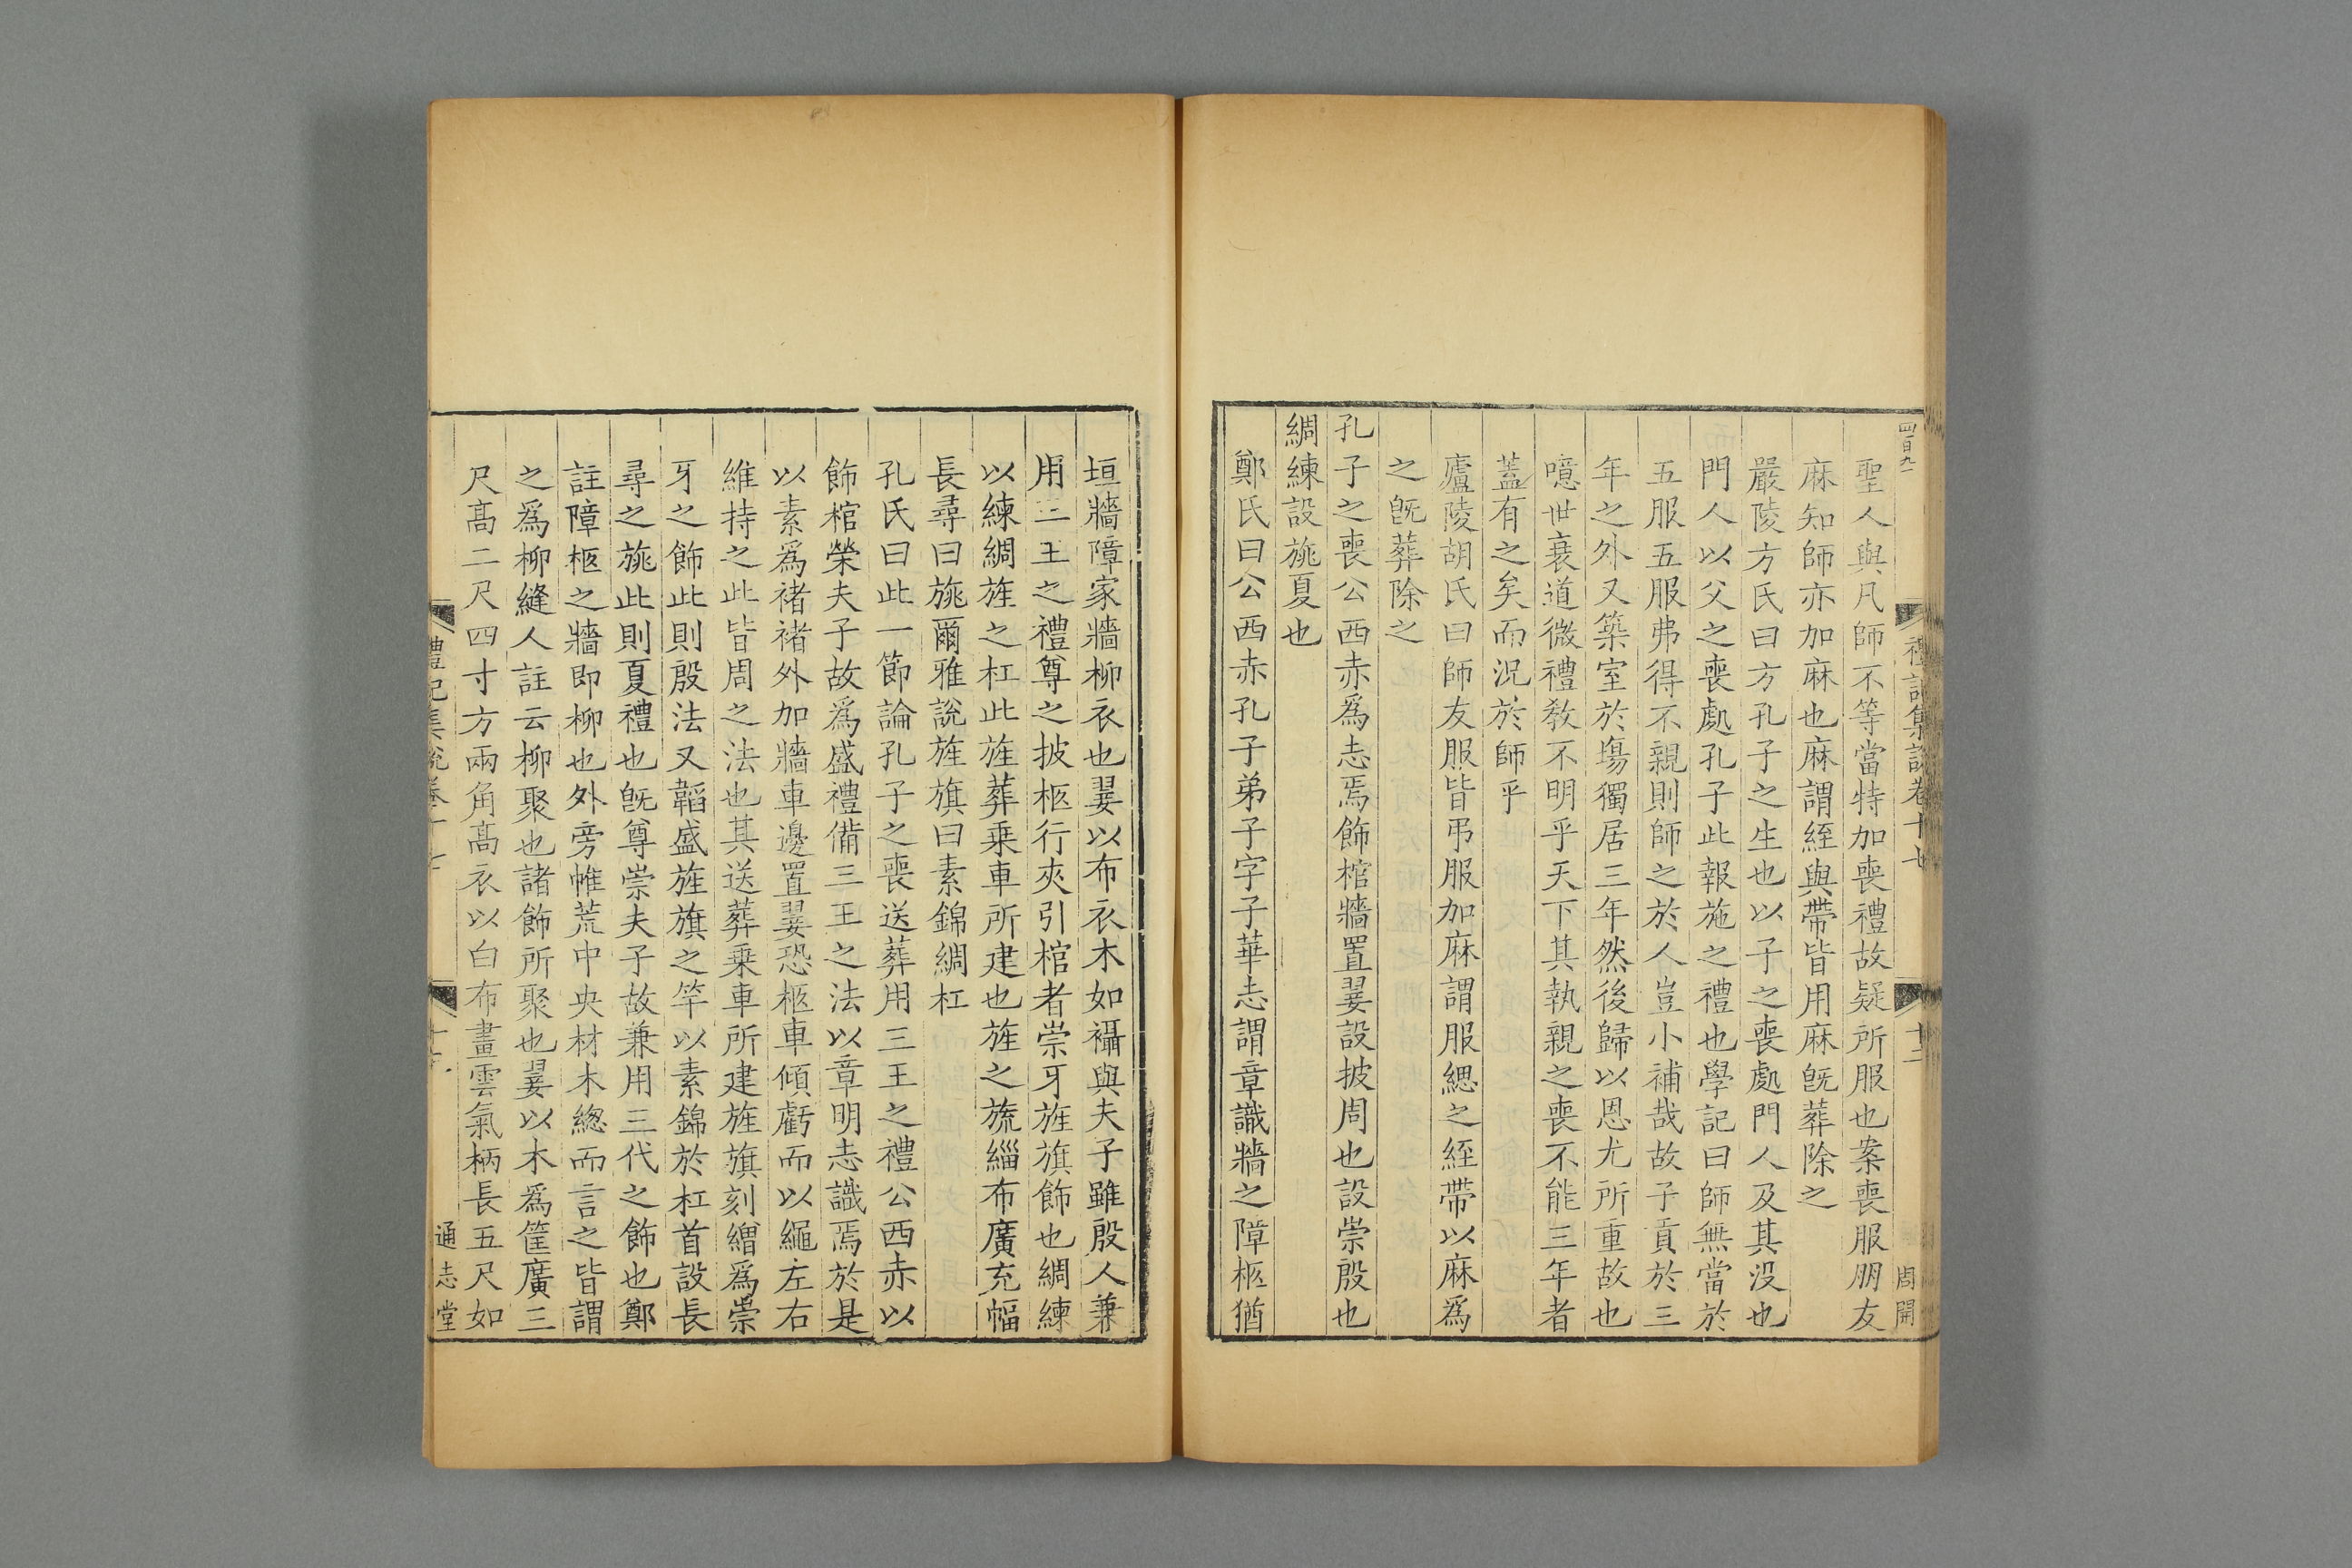 四百九一
禮記集說卷十七
十二
周開
聖人與凡師不等當特加喪禮故疑所服也案喪服朋友
麻知師亦加麻也麻謂絰與帶皆用麻旣葬除之
嚴陵方氏曰方孔子之生也以子之喪處門人及其没也
門人以父之喪處孔子此報施之禮也學記曰師無當於
五服五服弗得不親則師之於人豈小補哉故子貢於三
年之外又築室於塲獨居三年然後歸以恩尤所重故也
噫世衰道微禮教不明乎天下其執親之喪不能三年者
蓋有之矣而況於師乎
廬陵胡氏曰師友服皆弔服加麻謂服緦之絰帶以麻爲
之旣葬除之
孔子之喪公西赤爲志焉飾棺牆置翣設披周也設崇殷也
綢練設旐夏也
鄭氏曰公西赤孔子弟子字子華志謂章識牆之障柩猶
垣牆障家牆柳衣也翣以布衣木如襵與夫子雖殷人兼
用三王之禮尊之披柩行夾引棺者崇牙旌旗飾也綢練
以練綢旌之杠此旌葬乘車所建也旌之旒緇布廣充幅
長尋曰旐爾雅說旌旗曰素錦綢杠
孔氏曰此一節論孔子之喪送葬用三王之禮公西赤以
飾棺榮夫子故爲盛禮備三王之法以章明志識焉於是
以素爲褚褚外加牆車邊置翣恐柩車傾虧而以繩左右
維持之此皆周之法也其送葬乘車所建旌旗刻繒爲崇
牙之飾此則殷法又韜盛旌旗之竿以素錦於杠首設長
尋之旐此則夏禮也旣尊崇夫子故兼用三代之飾也鄭
註障柩之牆即柳也外旁帷荒中央材木總而言之皆謂
之爲柳縫人註云柳聚也諸飾所聚也翣以木爲筐廣三
尺高二尺四寸方兩角高衣以白布畫雲氣柄長五尺如
禮記集說卷十七
通志堂